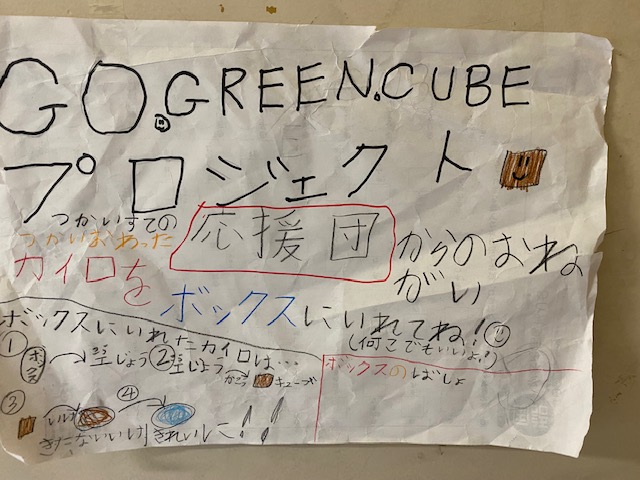 GO.GREEN.CUBE
プロジェクト
つかいすての
つかいおわった
応援団
からのおね
がい
カイロを
ボックスにいれてね!
(何こでもいいよ!)
ボックスにいれたカイロは…
① ボックス 工じょう ② 工じょう かこう キューブ
③ いけ ④
きたないいけ きれいに!!
ボックスのばしょ